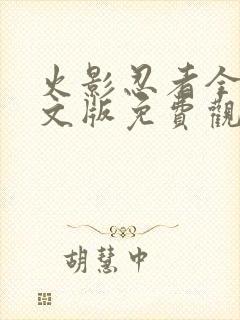 火影忍者全
文版免費觀
胡慧中